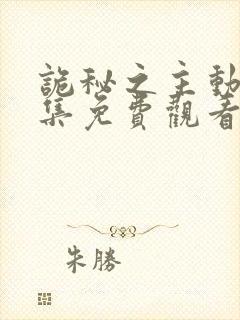 詭秘之主動
集免費觀看
朱勝